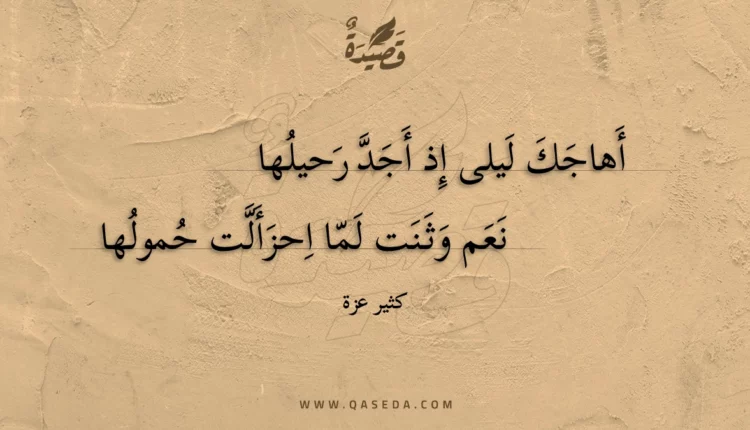 قَصِيدَةٌ
أَهاجَكَ لَيلى إِذ أَجَدَّ رَحيلُها
نَعَم وَثَنَت لَمّا اِحزَأَلَّت حُمولُها
كثير عزة
WWW.QASEDA.COM